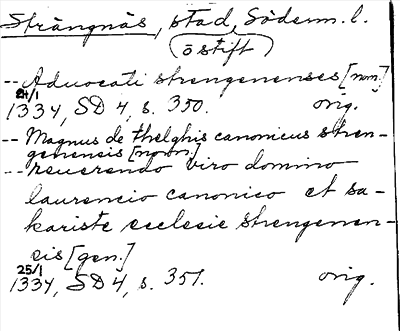 Strängnäs, stad, Söderm. l.
(östift)
-- Advocati strengenenses [nom.]
24/1
1334, SD 4, s. 350. orig.
-- Magnus de thelghis canonicus stren-
genensis [nom.]
-- reuerendo viro domino
laurencio canonico et sa-
kariste ecclesie strengenen-
cis [gen.]
25/1
1334, SD 4, s. 351. orig.